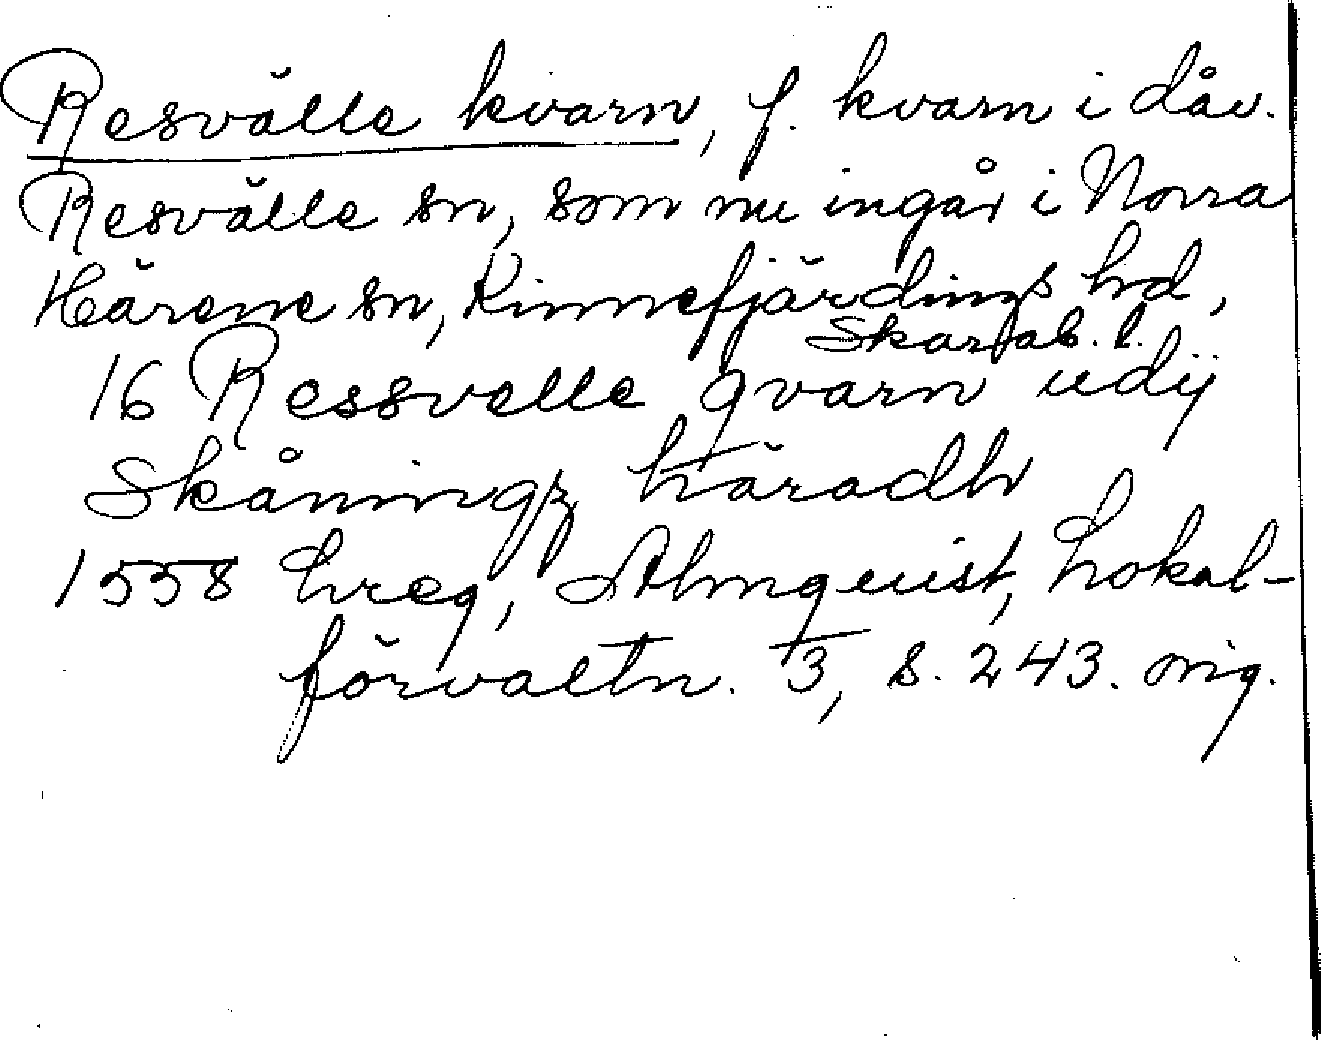 Resvälle kvarn, f. kvarn i dåv.
Resvälle sn, som nu ingår i Norra
Härene sn, Kinnefjärdings hd,
Skarab. l.
16 Ressvelle qvarn udij
Skåningz häradh
1558 hreg, Almquist, Lokal-
förvaltn. 3, s. 243. orig.